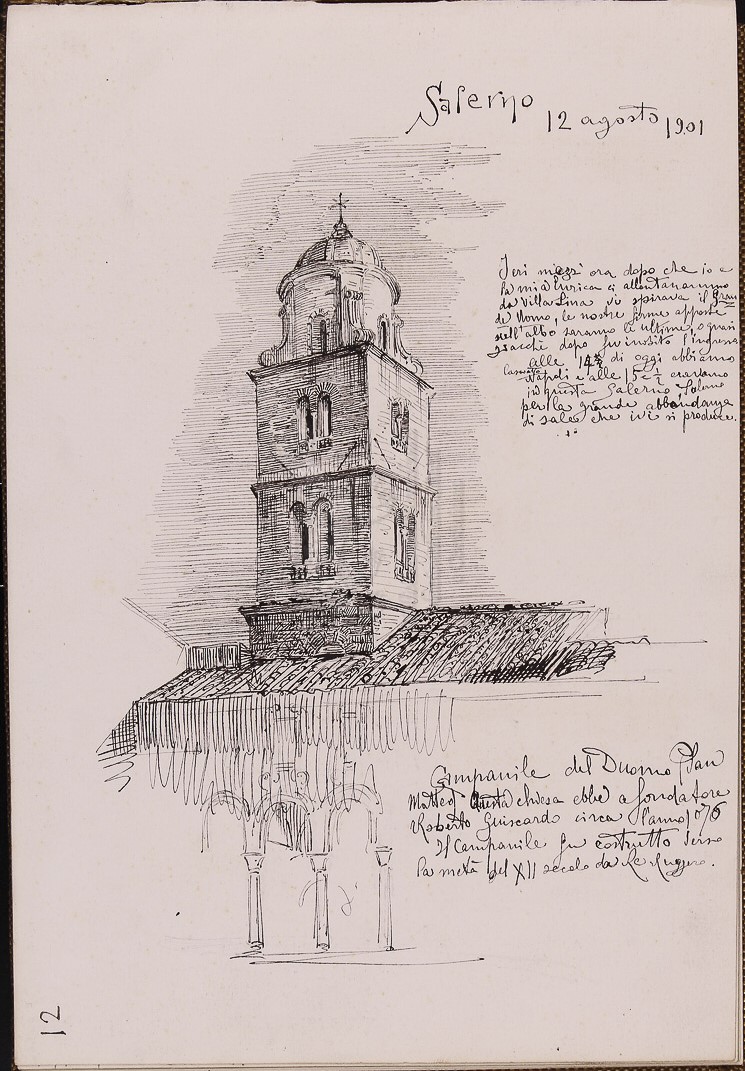 Salerno 12 agosto 1901
Jeri mezz' ora dopo che io e
la mia Enrica ci allontanammo
da Villa Lina vi spirava il gran
de Uomo, le nostre firme apposte
nell'albo saranno le ultime, o quasi
giacchè dopo fu inibito l'ingresso
alle 14 di oggi abbiamo
lasciato Napoli e alle 15 e ½ eravamo
in questa Salerno,
per la grande abbondanza
di sale che ivi si produce.
Campanile del Duomo (San
Matteo) Questa chiesa ebbe a fondatore
Roberto Guiscardo circa l'anno 1076
Il Campanile fu costrutto verso
la metà del XII secolo da Re Ruggero.
12